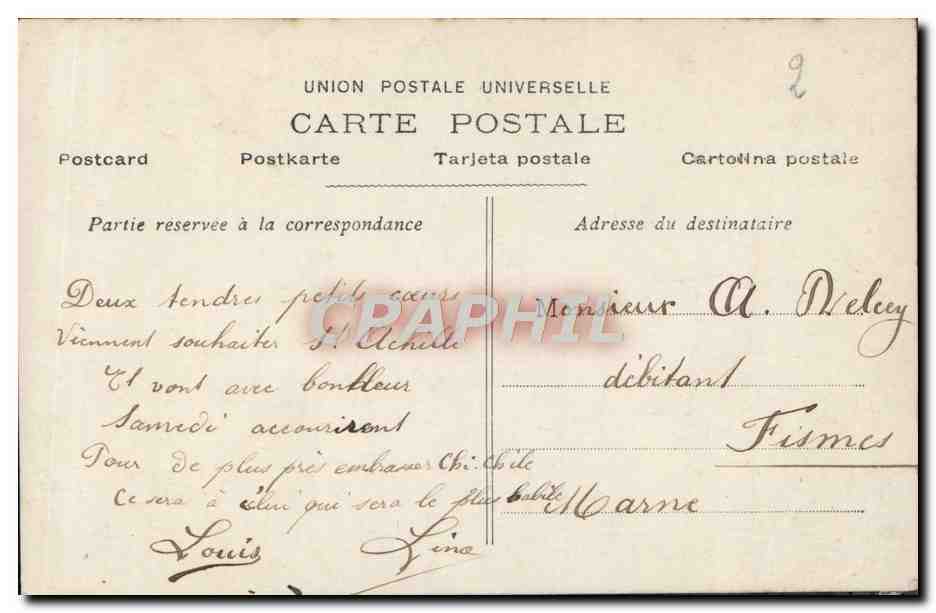 2
UNION POSTALE UNIVERSELLE
CARTE POSTALE
Postcard Postkarte Tarjeta postale Cartolina postale
Partie réservée à la correspondance
Deux tendres petits cœurs
Viennent souhaiter St Achille
Et vont avec bonheur
Samedi accourirent
Pour de plus près embrasser Chi-Chile
Ce sera à celui qui sera le plus habile
Louis Line
Adresse du destinataire
Monsieur A. Delcey
débitant
Fismes
Marne
CPAPHIL